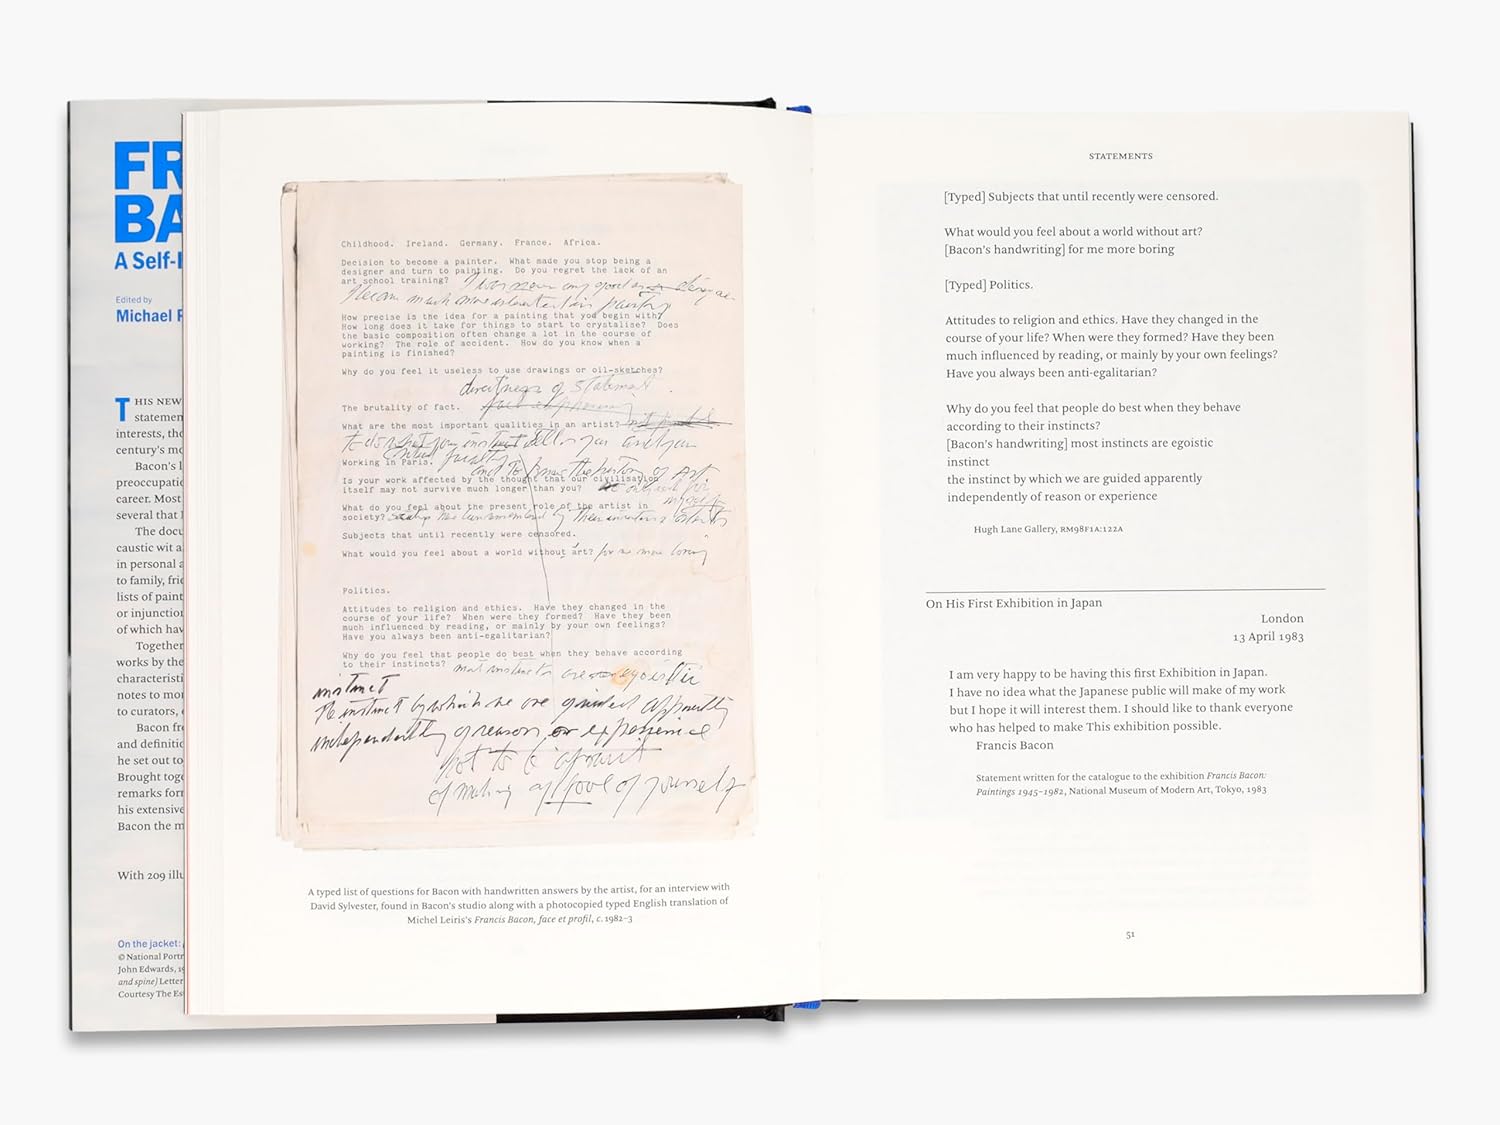 FR
BA
A Self-
Edited by
Michael
THIS NEW
statemen
interests, the
century's mo
Bacon's l
preoccupatio
career. Most
several that
The docu
caustic wit a
in personal a
to family, frie
lists of paint
or injunction
of which hav
Together
works by the
characteristi
notes to mo
to curators,
Bacon fre
and definitio
he set out to
Brought toge
remarks for
his extensive
Bacon the m
With 209 illu
On the jacket:
© National Portr
John Edwards, 19
and spine) Letter
Courtesy The Es
Childhood. Ireland. Germany. France. Africa.
Decision to become a painter. What made you stop being a
designer and turn to painting. Do you regret the lack of an
art school training? I was never any good as a designer
I became much more interested in painting
How precise is the idea for a painting that you begin with?
How long does it take for things to start to crystalise? Does
the basic composition often change a lot in the course of
working? The role of accident. How do you know when a
painting is finished?
Why do you feel it useless to use drawings or oil-sketches?
directness of statement
The brutality of fact.
What are the most important qualities in an artist?
to do what your instinct tells you
Working in Paris.
and to know the history of Art
Is your work affected by the thought that our civilisation
itself may not survive much longer than you?
What do you feel about the present role of the artist in
society?
Subjects that until recently were censored.
What would you feel about a world without art? for me more boring
Politics.
Attitudes to religion and ethics. Have they changed in the
course of your life? When were they formed? Have they been
much influenced by reading, or mainly by your own feelings?
Have you always been anti-egalitarian?
Why do you feel that people do best when they behave according
to their instincts? most instincts are egoistic
instinct
the instinct by which we are guided apparently
independently of reason or experience
not to be afraid
of making a fool of yourself
A typed list of questions for Bacon with handwritten answers by the artist, for an interview with
David Sylvester, found in Bacon's studio along with a photocopied typed English translation of
Michel Leiris's Francis Bacon, face et profil, c. 1982–3
STATEMENTS
[Typed] Subjects that until recently were censored.
What would you feel about a world without art?
[Bacon's handwriting] for me more boring
[Typed] Politics.
Attitudes to religion and ethics. Have they changed in the
course of your life? When were they formed? Have they been
much influenced by reading, or mainly by your own feelings?
Have you always been anti-egalitarian?
Why do you feel that people do best when they behave
according to their instincts?
[Bacon's handwriting] most instincts are egoistic
instinct
the instinct by which we are guided apparently
independently of reason or experience
Hugh Lane Gallery, RM98F1A:122A
On His First Exhibition in Japan
London
13 April 1983
I am very happy to be having this first Exhibition in Japan.
I have no idea what the Japanese public will make of my work
but I hope it will interest them. I should like to thank everyone
who has helped to make This exhibition possible.
Francis Bacon
Statement written for the catalogue to the exhibition Francis Bacon:
Paintings 1945–1982, National Museum of Modern Art, Tokyo, 1983
51